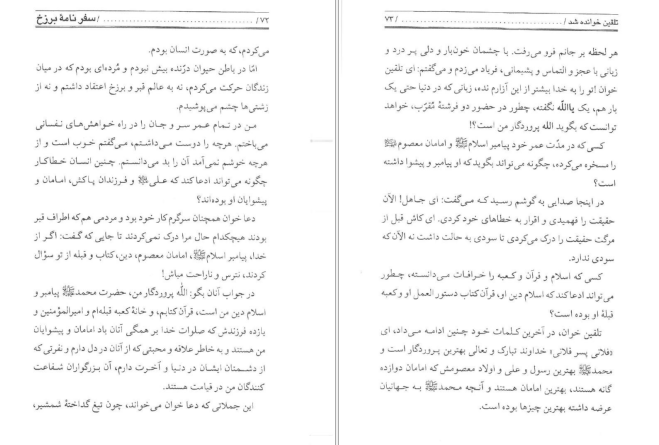 ۷۲/ ........................................ / سفرنامهٔ برزخ
می‌کردم، که به صورت انسان بودم.
امّا در باطن حیوان درّنده بیش نبودم و مُرده‌ای بودم که در میان
زندگان حرکت می‌کردم، نه به عالم قبر و برزخ اعتقاد داشتم و نه از
زشتی‌ها چشم می‌پوشیدم.
من در تمام عمر سر و جان را در راه خواهش‌های نفسانی
می‌باختم. هرچه را دوست می‌داشتم، می‌گفتم خوب است و از
هرچه خوشم نمی‌آمد آن را بد می‌دانستم. چنین انسان خطاکار
چگونه می‌تواند ادعا کند که علی و فرزندان پاکش، امامان و
پیشوایان او بوده‌اند؟
دعا خوان همچنان سرگرم کار خود بود و مردمی هم که اطراف قبر
بودند هیچکدام حال مرا درک نمی‌کردند تا جایی که گفت: اگر از
خدا، پیامبر اسلامﷺ، امامان معصوم، دین، کتاب و قبله از تو سؤال
کردند، نترس و ناراحت مباش!
در جواب آنان بگو: اللّه پروردگار من، حضرت محمدﷺ پیامبر و
اسلام دین من است، قرآن کتابم، و خانهٔ کعبه قبله‌ام و امیرالمؤمنین و
یازده فرزندش که صلوات خدا بر همگی آنان باد امامان و پیشوایان
من هستند و به خاطر علاقه و محبتی که از آنان در دل دارم و نفرتی که
از دشمنان ایشان در دنیا و آخرت دارم، آن بزرگواران شفاعت
کنندگان من در قیامت هستند.
این جملاتی که دعا خوان می‌خواند، چون تیغ گداختهٔ شمشیر،
تلقین خوانده شد / ........................................ /۷۳
هر لحظه بر جانم فرو می‌رفت. با چشمان خون‌بار و دلی پر درد و
زبانی با عجز و التماس و پشیمانی، فریاد می‌زدم و می‌گفتم: ای تلقین
خوان !تو را به خدا بیشتر از این آزارم نده، زبانی که در دنیا حتی یک
بار هم، یک یااللّه نگفته، چطور در حضور دو فرشتهٔ مُقرّب، خواهد
توانست که بگوید الله پروردگار من است؟!
کسی که در مدّت عمر خود پیامبر اسلامﷺ و امامان معصوم
را مسخره می‌کرده، چگونه می‌تواند بگوید که او پیامبر و پیشوا داشته
است؟
در اینجا صدایی به گوشم رسید که می‌گفت: ای جاهل! الآن
حقیقت را فهمیدی و اقرار به خطاهای خود کردی. ای کاش قبل از
مرگت حقیقت را درک می‌کردی تا سودی به حالت داشت نه الآن که
سودی ندارد.
کسی که اسلام و قرآن و کعبه را خرافات می‌دانسته، چطور
می‌تواند ادعا کند که اسلام دین او، قرآن کتاب دستور العمل او و کعبه
قبلهٔ او بوده است؟
تلقین خوان، در آخرین کلمات خود چنین ادامه می‌داد، ای
«فلانی پسر فلانی» خداوند تبارک و تعالی بهترین پروردگار است و
محمدﷺ بهترین رسول و علی و اولاد معصومش که امامان دوازده
گانه هستند، بهترین امامان هستند و آنچه محمدﷺ به جهانیان
عرضه داشته بهترین چیزها بوده است.